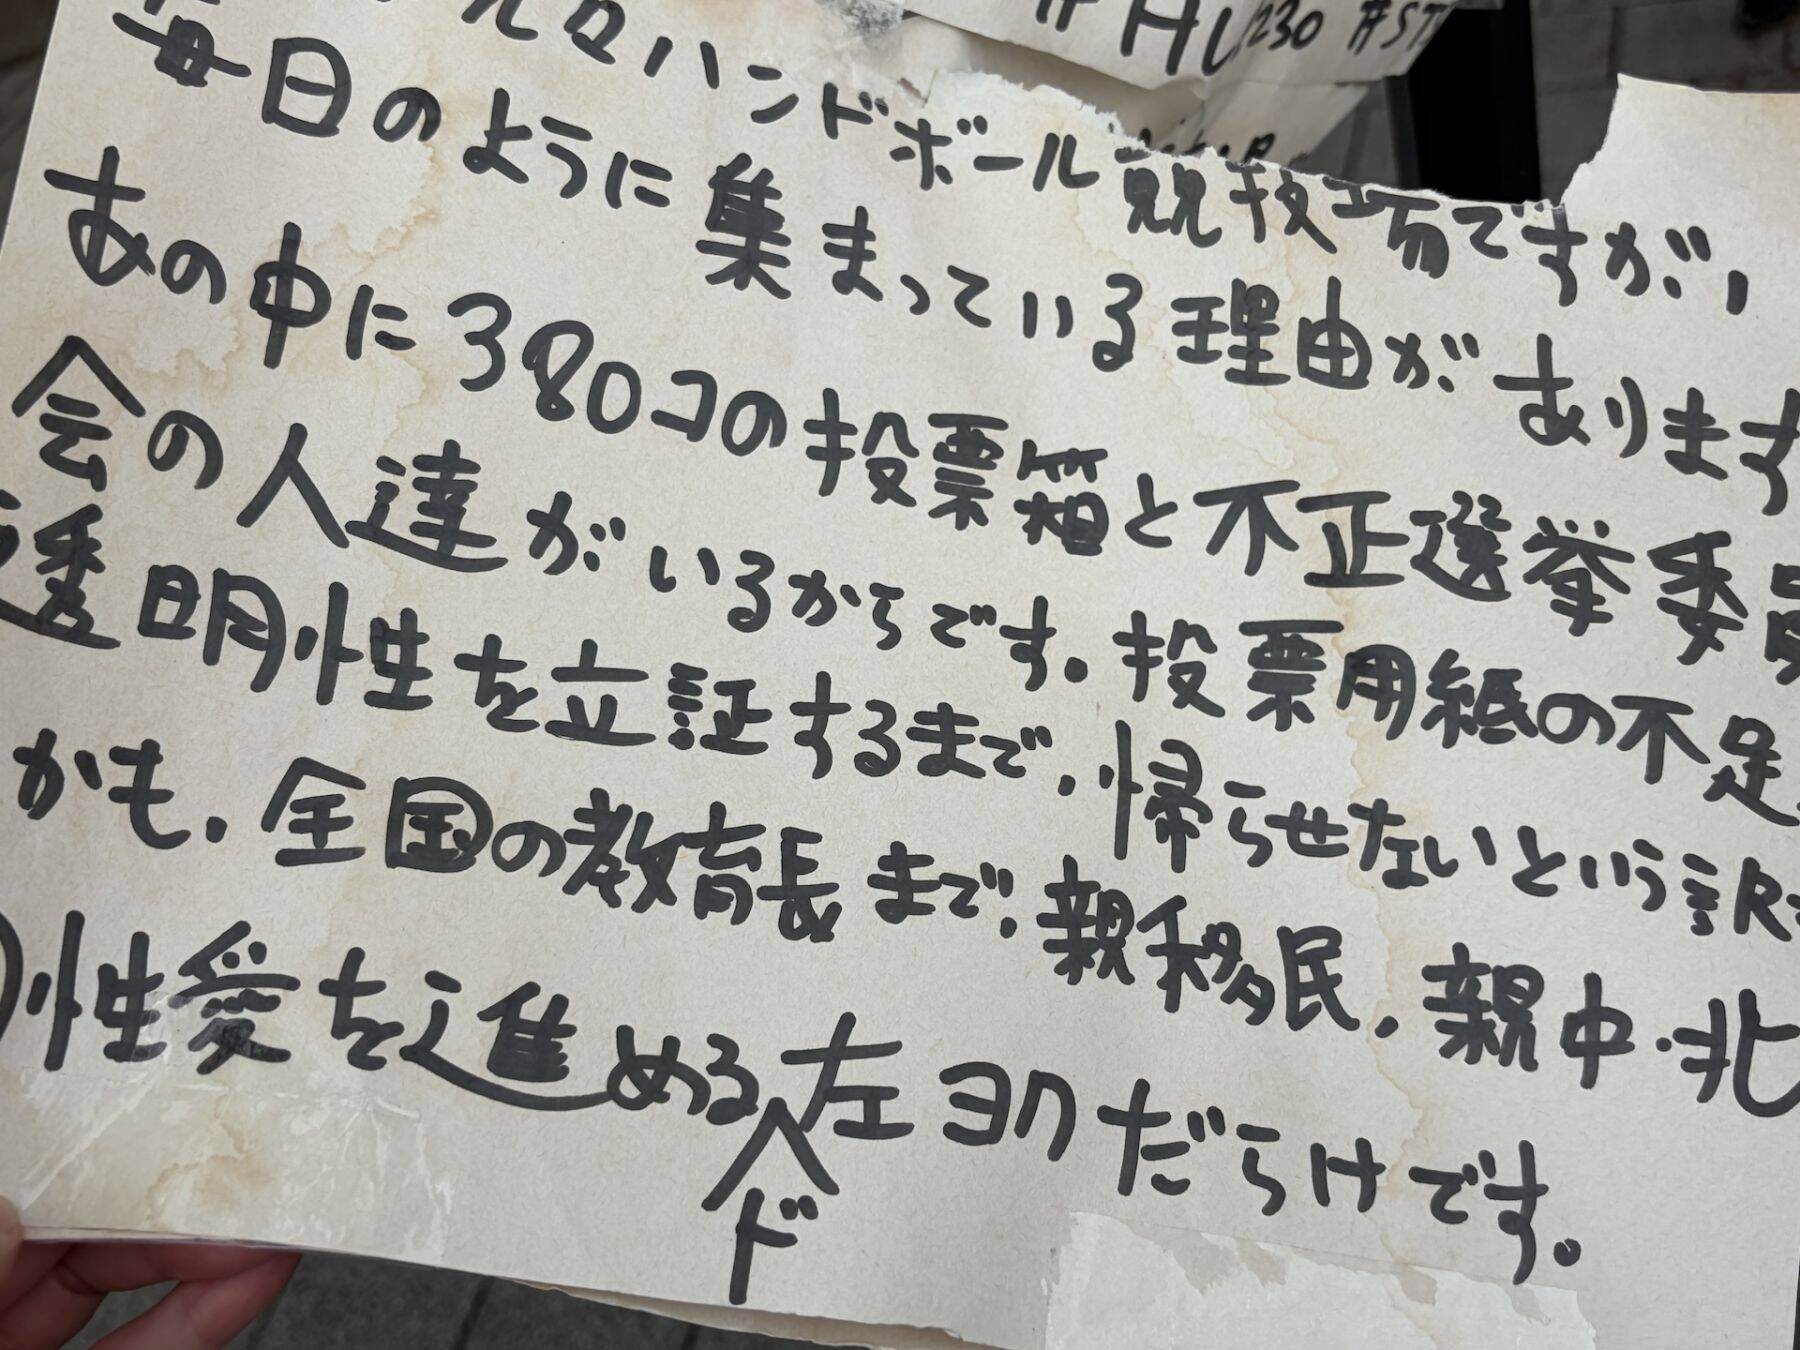 #HU230 #ST
元々ハンドボール競技場ですが、
毎日のように集まっている理由があります
あの中に380コの投票箱と不正選挙委員
会の人達がいるからです。投票用紙の不足
透明性を立証するまで、帰らせないという訳
かも、全国の教育長まで、親移民、親中・北
性愛を進める左ヨクだらけです。
ド